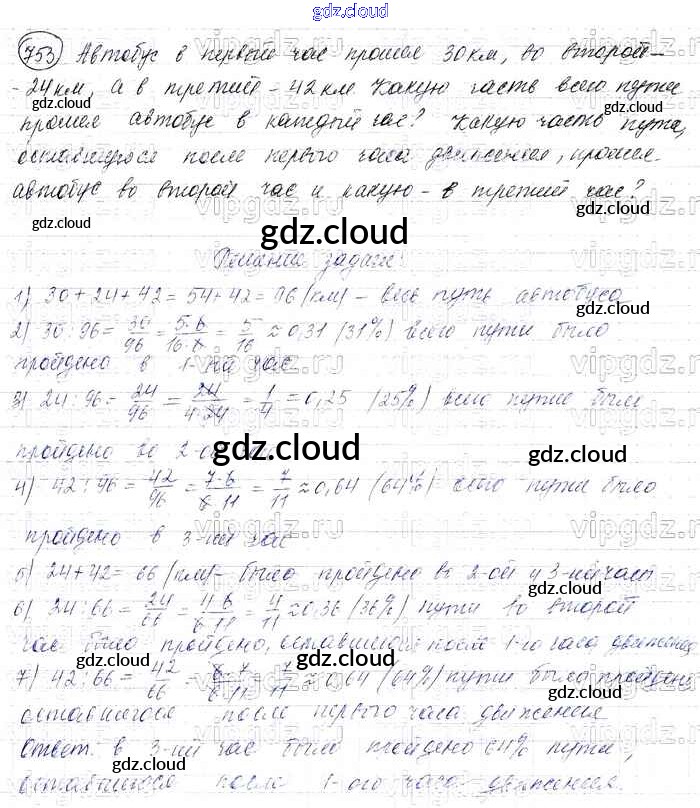 gdz.cloud
753) Автобус в первый час прошел 30 км, во второй -
- 24 км, а в третий - 42 км. Какую часть всего пути
gdz.cloud gdz.cloud
прошел автобус в каждый час? Какую часть пути,
оставшегося после первого часа движения, прошел
gdz.cloud gdz.cloud
автобус во второй час и какую - в третий час?
gdz.cloud gdz.cloud
gdz.cloud
Решение задачи:
1) 30 + 24 + 42 = 54 + 42 = 96 (км) - весь путь автобуса
gdz.cloud gdz.cloud
2) 30 : 96 = 30/96 = 5·6/16·6 = 5/16 ≈ 0,31 (31%) всего пути было
пройдено в 1-ый час
gdz.cloud gdz.cloud
3) 24 : 96 = 24/96 = 24/4·24 = 1/4 = 0,25 (25%) всего пути было
пройдено во 2-ой
gdz.cloud gdz.cloud
4) 42 : 96 = 42/96 = 7·6/6·11 = 7/11 ≈ 0,64 (64%) всего пути было
gdz.cloud gdz.cloud
пройдено в 3-ий час
5) 24 + 42 = 66 (км) - было пройдено во 2-ой и 3-ий час
gdz.cloud gdz.cloud
6) 24 : 66 = 24/66 = 4·6/6·11 = 4/11 ≈ 0,36 (36%) пути во второй
час было пройдено, оставшегося после 1-го часа движения
gdz.cloud gdz.cloud
7) 42 : 66 = 42/66 = 6·7/6·11 = 7/11 ≈ 0,64 (64%) пути было пройдено
gdz.cloud gdz.cloud
оставшегося после первого часа движения
Ответ: в 3-ий час было пройдено 64% пути,
gdz.cloud gdz.cloud
оставшегося после 1-ого часа движения.